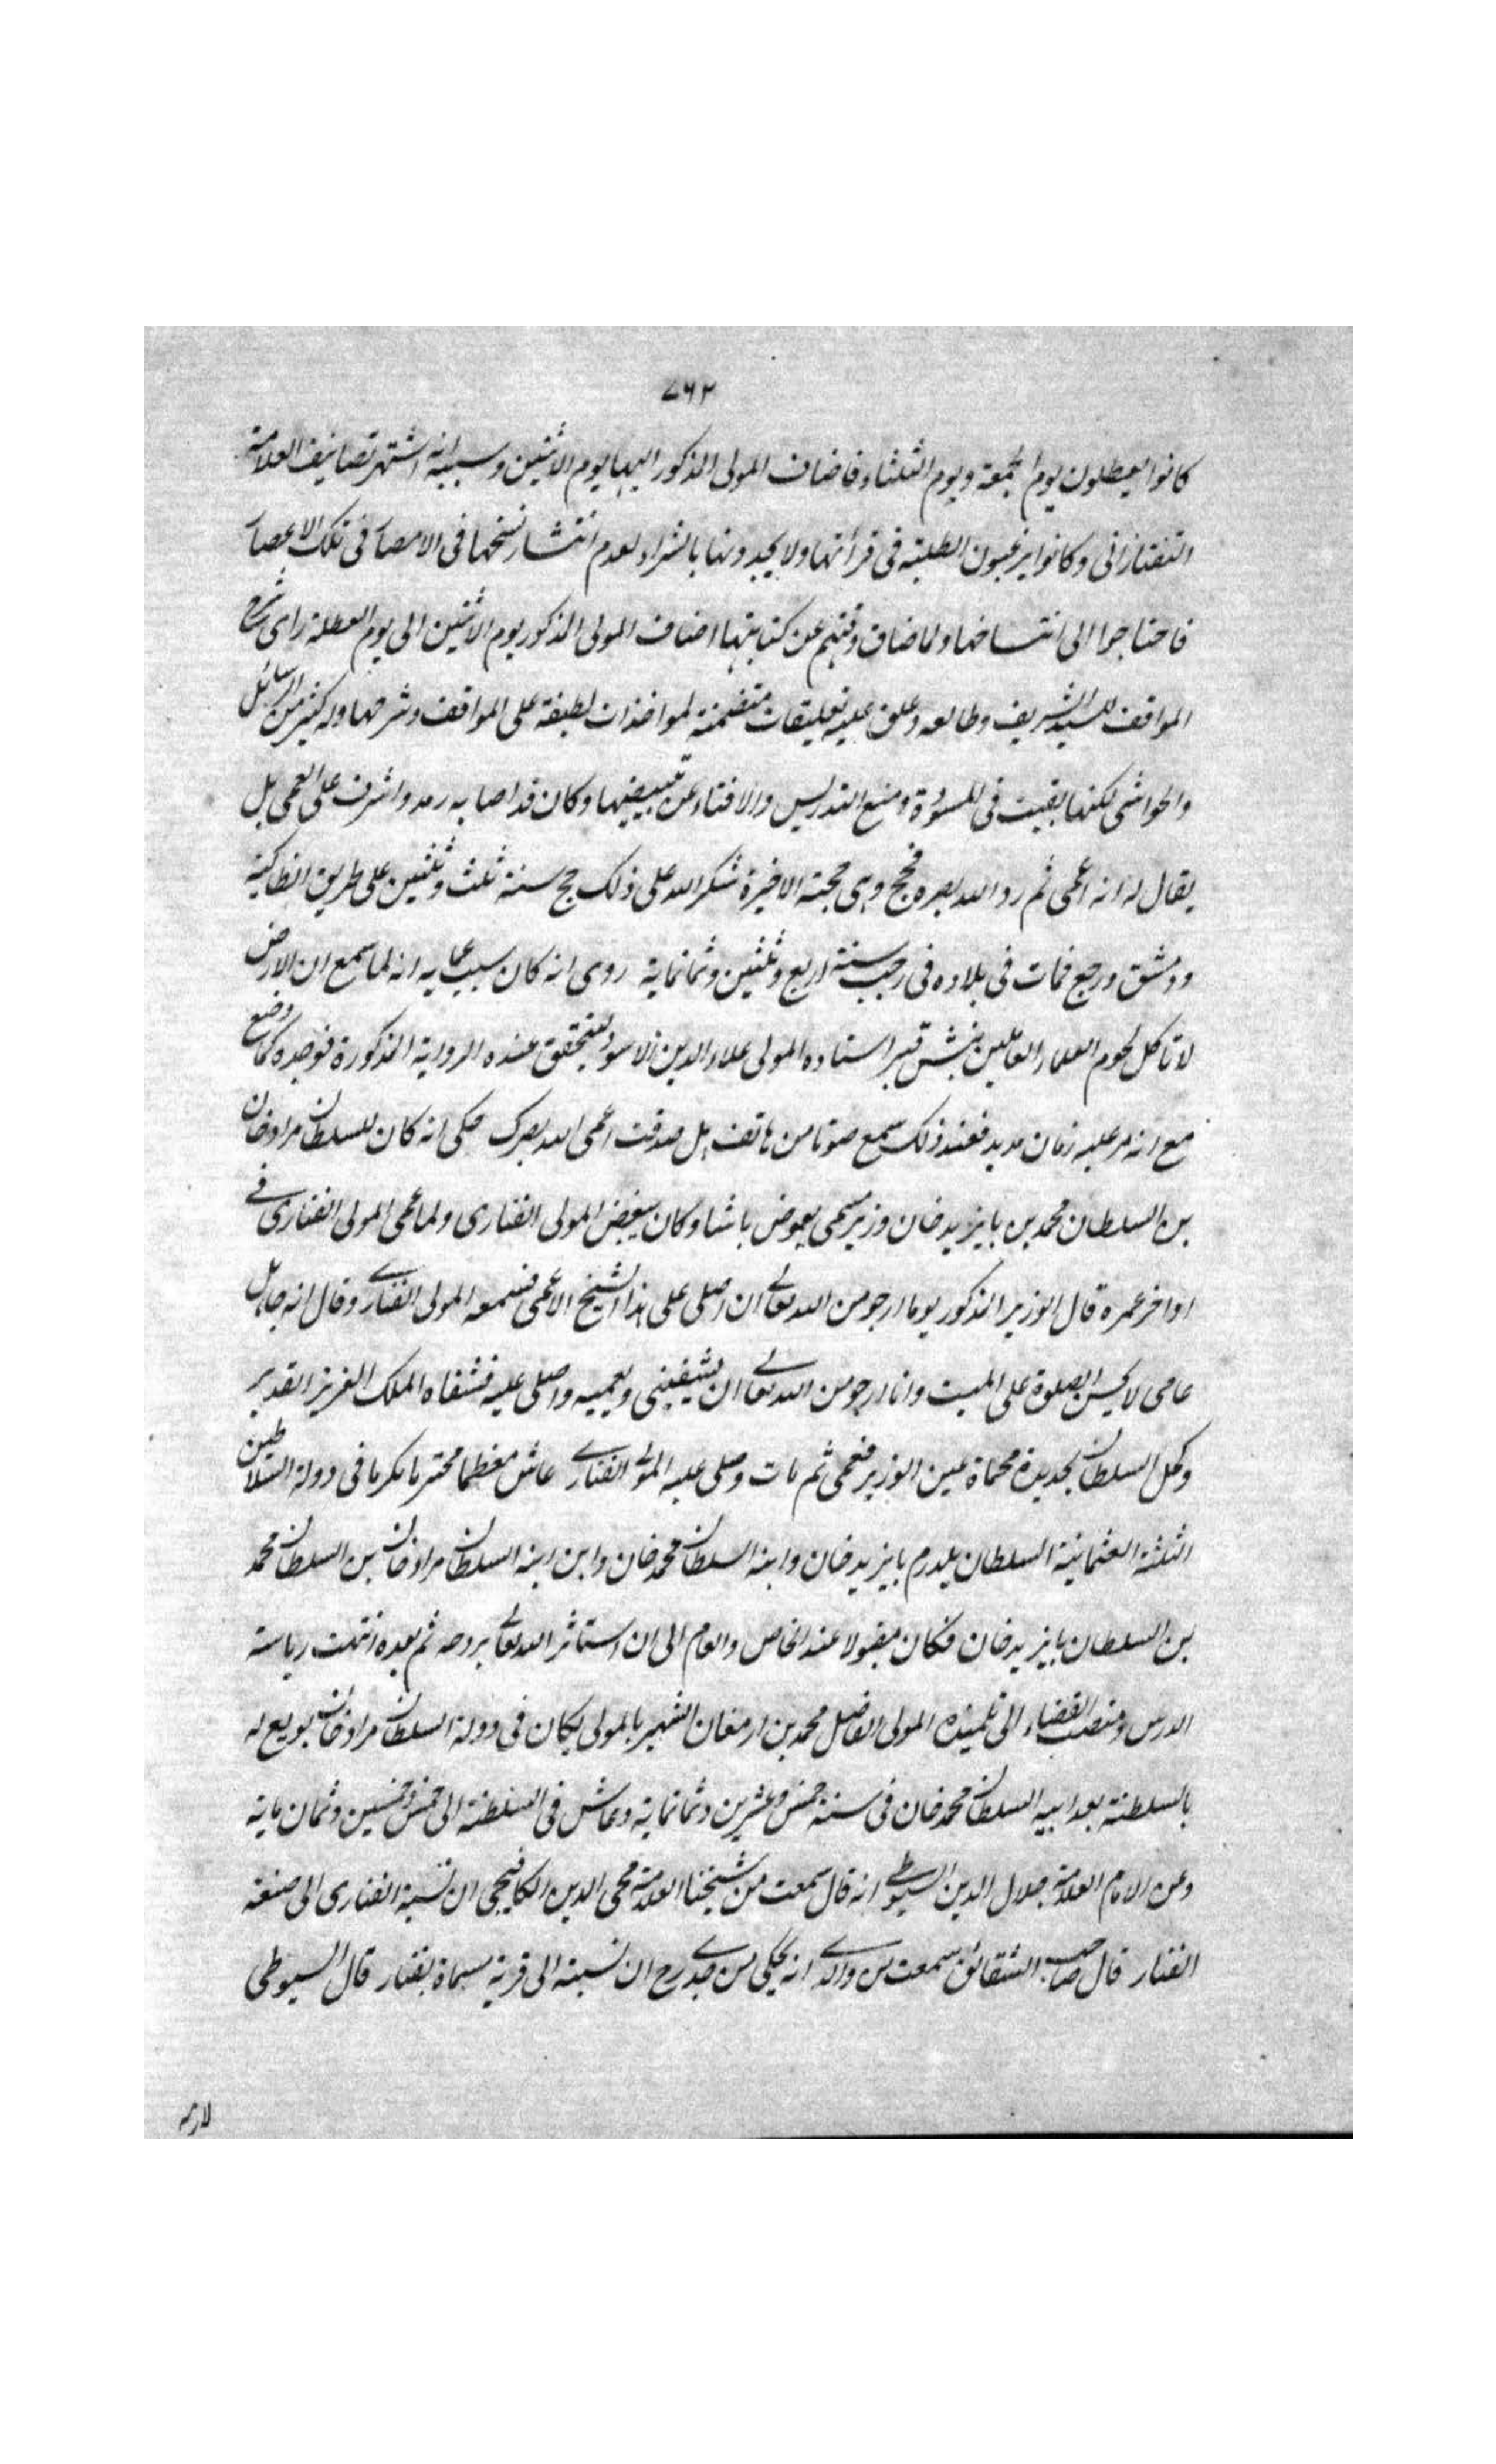 ٧٦٢
كانوا يعطلون يوم الجمعة ويوم الثلثاء فاضاف المولى المذكور اليها يوم الاثنين وسببه انه اشتهر تصانيف العلامة
التفتازانى وكانوا يرغبون الطلبة فى قرأتها ولا يجدونها بالشراء لعدم انتشار نسخها فى الامصار فى تلك الاعصار
فاحتاجوا الى انتساخها ولما ضاق وقتهم عن كتابتها اضاف المولى المذكور يوم الاثنين الى يوم العطلة راى شرح
المواقف للسيد الشريف وطالعه وعلق عليه تعليقات متضمنة لمواخذات لطيفة على المواقف وشرحها وله كثير من الرسائل
والحواشى لكنها بقيت فى المسودة ومنع التدريس والافتاء عن تبييضها وكان قد اصابه رمد واشرف على العمى بل
يقال له انه اعمى ثم رد الله بصره فحج وهى حجته الاخيرة شكر الله على ذلك حج سنة ثلث وثلثين على طريق انطاكية
ودمشق ورجع فمات فى بلاده فى رجب سنة اربع وثلثين وثمانماية روى انه كان سبب عماه انه لما سمع ان الارض
لا تاكل لحوم العلماء العاملين نبش قبر استاده المولى علاء الدين الاسود ليتحقق عنده الرواية المذكورة فوجده كما وضع
مع انه مر عليه زمان مديد فعند ذلك سمع صوتا من هاتف هل صدقت اعمى الله بصرك حكى انه كان للسلطان مراد خان
بن السلطان محمد بن بايزيد خان وزير مسمى بعوض باشا وكان يبغض المولى الفنارى ولما عمى المولى الفنارى فى
اواخر عمره قال الوزير المذكور يوما ارجو من الله تعالى ان اصلى على هذا الشيخ الاعمى فسمعه المولى الفنارى وقال انه جاهل
عامى لا يحسن الصلوة على الميت وانا ارجو من الله تعالى ان يشفينى ويعميه واصلى عليه فشفاه الملك العزيز القدير
وكحل السلطان بحديدة محماة عين الوزير فعمى ثم مات وصلى عليه المولى الفنارى عاش معظما محترما مكرما فى دولة السلاطين
الثلثة العثمانية السلطان يلدرم بايزيد خان وابنه السلطان محمد خان وابن ابنه السلطان مراد خان بن السلطان محمد
بن السلطان بايزيد خان فكان مقبولا عند الخاص والعام الى ان استاثر الله تعالى بروحه ثم بعده انتهت رياسة
الدرس ومنصب القضاء الى تلميذه المولى الفاضل محمد بن ارمغان الشهير بالمولى يكان فى دولة السلطان مراد خان بويع له
بالسلطنة بعد ابيه السلطان محمد خان فى سنة خمس وعشرين وثمانماية وعاش فى السلطنة الى خمس وخمسين وثمان ماية
وعن الامام العلامة جلال الدين السيوطى انه قال سمعت من شيخنا العلامة محى الدين الكافيجى ان نسبة الفنارى الى صنعة
الفنار قال صاحب الشقائق سمعت من والدى انه يحكى من جدى رح ان نسبته الى قرية مسماة بفنار قال السيوطى
لازمه